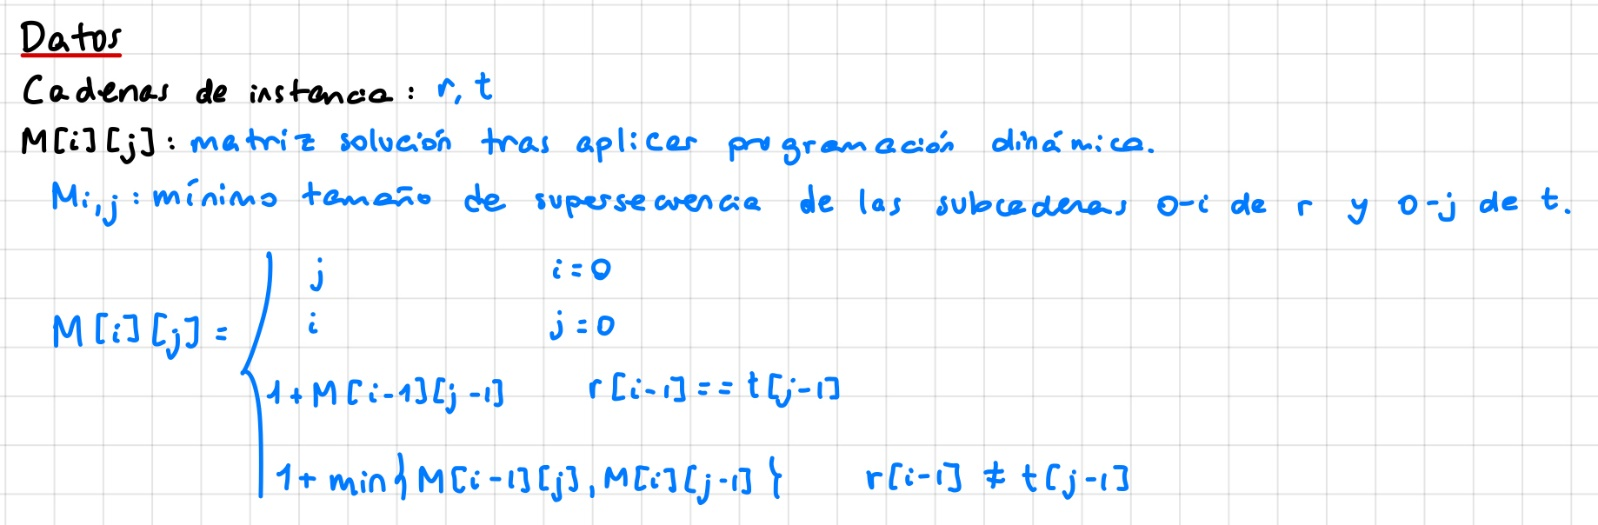 Datos
Cadenas de instancia: r, t
M[i][j]: matriz solución tras aplicar programación dinámica.
Mi,j: mínimo tamaño de supersecuencia de las subcadenas 0-i de r y 0-j de t.
j i=0
M[i][j]= i j=0
1+M[i-1][j-1] r[i-1]==t[j-1]
1+min{M[i-1][j],M[i][j-1]} r[i-1]≠t[j-1]